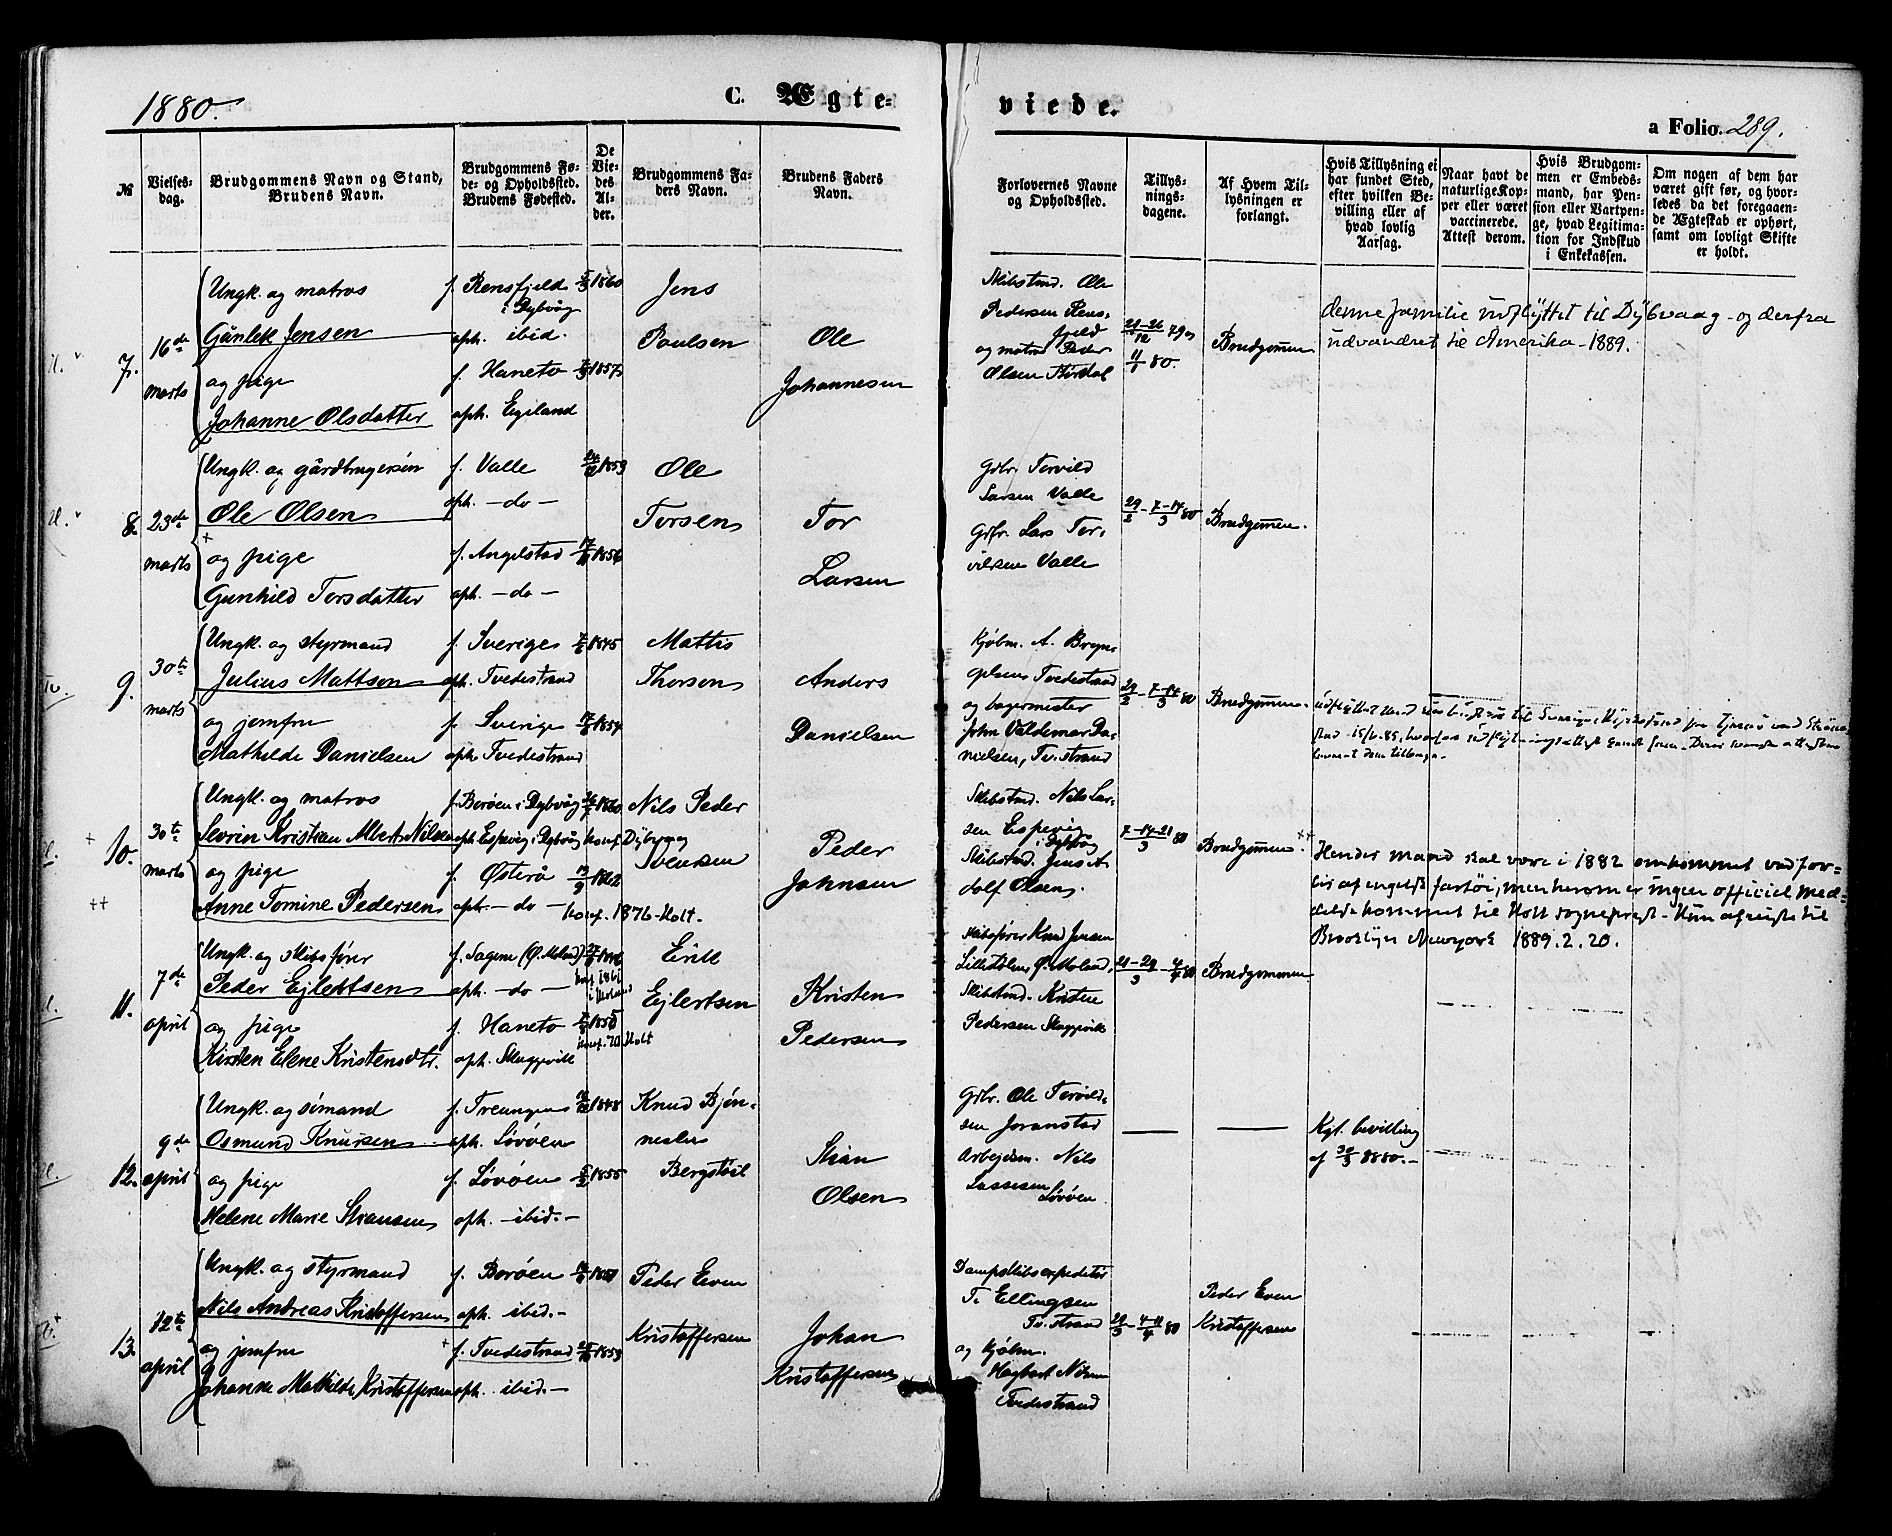 1880.
C. Ægte-
viede.
a Folio. 289.
№
Vielses-
dag.
Brudgommens Navn og Stand,
Brudens Navn.
Brudgommens Fø-
de- og Opholdssted.
Brudens Fødested.
De
Vie-
des
Al-
der.
Brudgommens Fa-
ders Navn.
Brudens Faders
Navn.
Forlovernes Navne
og Opholdssted.
Tillys-
nings-
dagene.
Af Hvem Til-
lysningen er
forlangt.
Hvis Tillysning ei
har fundet Sted,
efter hvilken Be-
villing eller af
hvad lovlig
Aarsag.
Naar havt de
naturlige Kop-
per eller været
vaccinerede.
Attest derom.
Hvis Brudgom-
men er Embeds-
mand, har Pen-
sion eller Vartpen-
ge, hvad Legitima-
tion for Indskud
i Enkekassen.
Om nogen af dem har
været gift før, og hvor-
ledes da det foregaaen-
de Ægteskab er ophørt,
samt om lovligt Skifte
er holdt.
7.
16de
marts
Ungk. og matros
Gunlek Jensen
og pige
Johanne Olsdatter
f. Rensfjeld
i Dybvåg
oph. ibid.
f. Haneto
oph. Egeland
1860
1857
Jens
Paulsen
Ole
Johannesen
Skibstmd. Ole
Pedersen Rens-
fjeld
og matros Peder
Olsen
21-26/12 79 og
11/1 80.
Brudgommen
denne familie udflyttet til Dybvaag - og derfra
udvandret til Amerika - 1889.
8.
23de
marts
Ungk. og gårdbrugersøn
Ole Olsen
og pige
Gunhild Torsdatter
f. Valle
oph. - do -
f. Angelstad
oph. - do -
1853
1856
Ole
Torsen
Tor
Larsen
Grbr. Torvild
Larsen Valle
Grbr. Lars Tor-
vildsen Valle
29/2 - 7-14/3 80
Brudgommen.
9.
30te
marts
Ungk. og styrmand
Julius Mattson
og jomfru
Mathilde Danielsen
f. Sverige
oph. Tvedestrand
f. Sverige
oph. Tvedestrand
1845
1854
Mattis
Thorson
Anders
Danielsen
Kjøbm. A. Bryn-
gelsen Tvedestrand
og bagermester
John Valdemar Da-
nielsen, Tv.strand
29/2 - 7-14/3 80
Brudgommen.
10.
30te
marts
Ungk. og matros
Sevrin Kristian Albert Nilsen
og pige
Anne Tomine Pedersen
f. Borøen i Dybvåg
oph. Espevig i Dybvåg konf. Dybvaag
f. Østerå
oph. - do -
konf. 1876 - Holt.
1860
13/9 1862
Nils Peder
Svensen
Peder
Johnsen
Skibstmd. Nils Lar-
sen Espevig
i Dybvåg
Skibstmd. Jens A-
dolf Olsen.
7-14-21/3 80
Brudgommen.
Hendes mand skal være i 1882 omkommet ved for-
lis af engelsk fartøi, men herom er ingen officiel med-
delelse kommet til Holt sogneprest - Hun afreiste til
Brooklyn Newyork 1889.2.20.
11.
7de
april
Ungk. og skibsfører
Peder Ejlertsen
og pige
Kirsten Elene Kristensdtr.
f. Sagene (Ø. Moland)
oph. - do -
f. Haneto
oph. Skuggevik
1846
konf. 1861
i Moland
1855
konf. 70 Holt
Eirik
Ejlertsen
Kristen
Pedersen
Skibsfører Knud Jensen
Lilleholmen, Ø. Moland,
Skibstmd. Kristen
Pedersen Skuggevik
21-29/3 - 4/4 80
Brudgommen
12.
9de
april
Ungk. og sømand
Osmund Knudsen
og pige
Helene Marie Stiansen
f. Treungen
oph. Løvøen
f. Løvøen
oph. - ibid. -
1848
1855
Knud Bjøn-
nesløn
Bergstøil
Stian
Olsen
Grbr. Ole Torvild-
sen Joranstad
Arbejdsm. Nils
Lassesen
Løvøen
Kgl. bevilling
af 30/3 1880. -
13.
12te
april
Ungk. og styrmand
Nils Andreas Kristoffersen
og jomfru
Johanne Mathilde Kristoffersen
f. Borøen
oph. ibid. -
f. Tvedestrand
oph. ibid. -
1851
1853
Peder Even
Kristoffersen
Johan
Kristoffersen
Dampskibsexpeditør
T. Ellingsen
Tv.strand
og Kjøbm.
Hagbart Nilsen
Tvedestrand
29/3 - 4-11/4 80
Peder Even
Kristoffersen